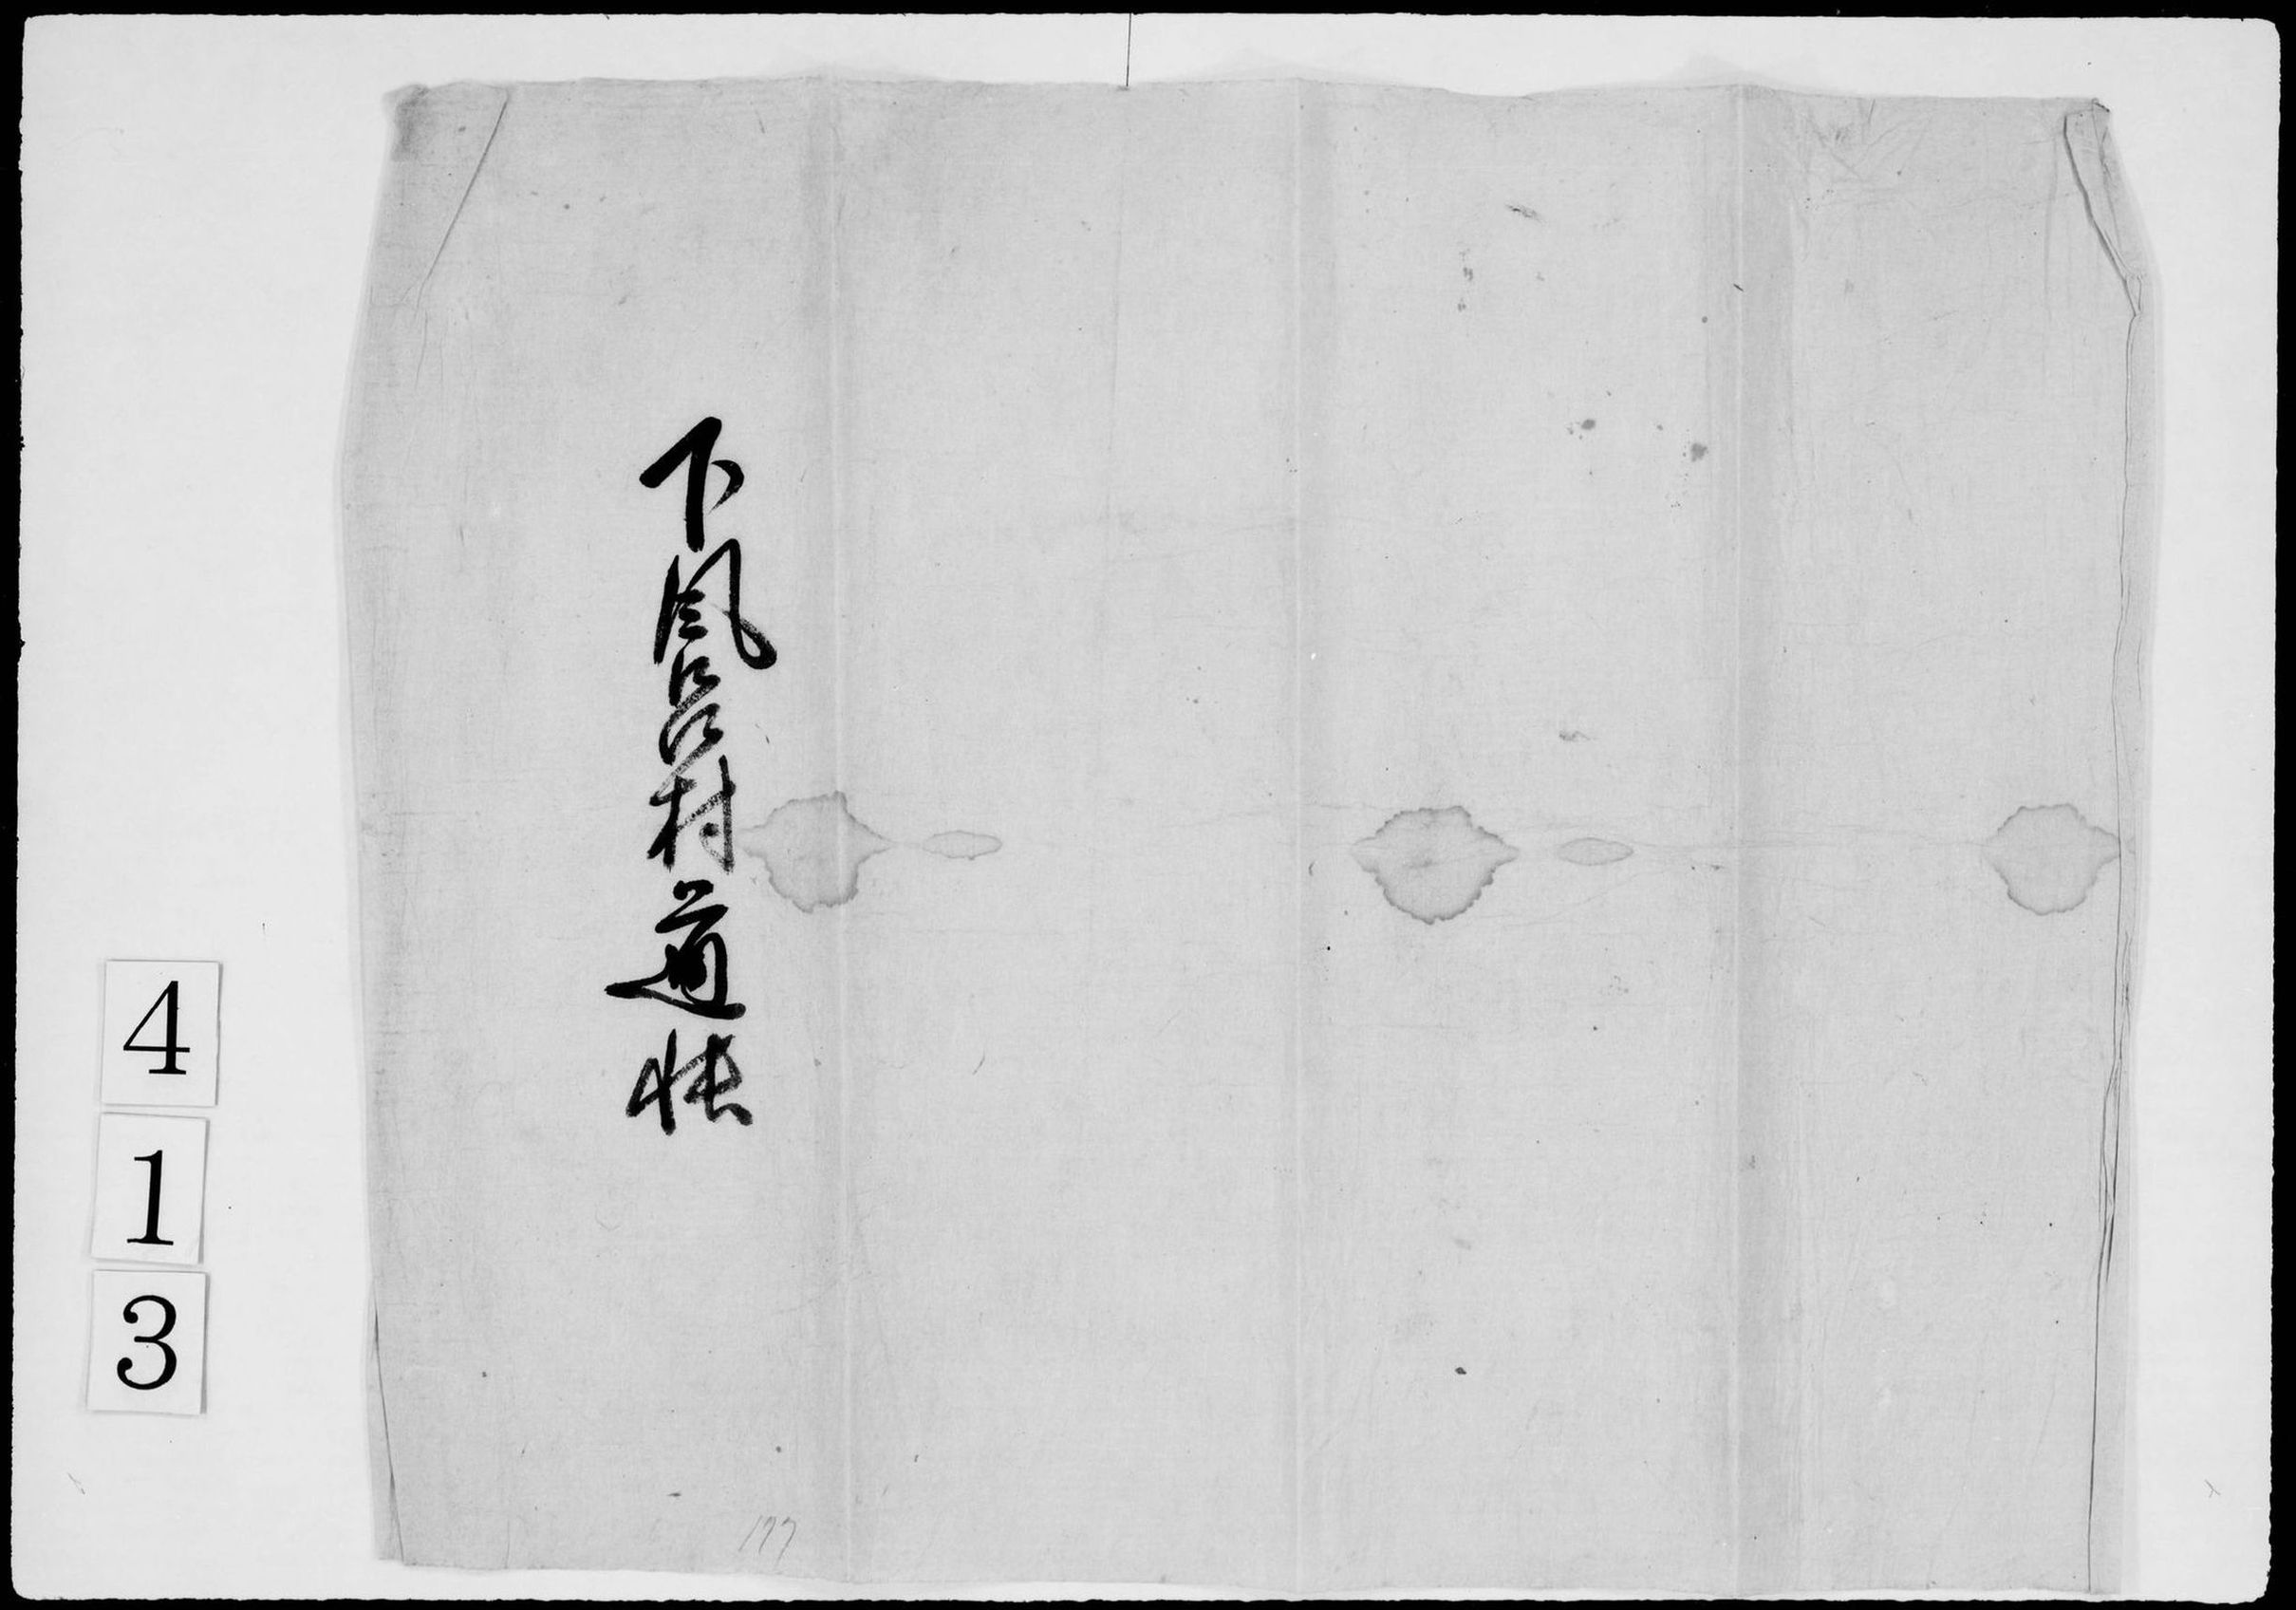 下風呂村道帳
4
1
3
177